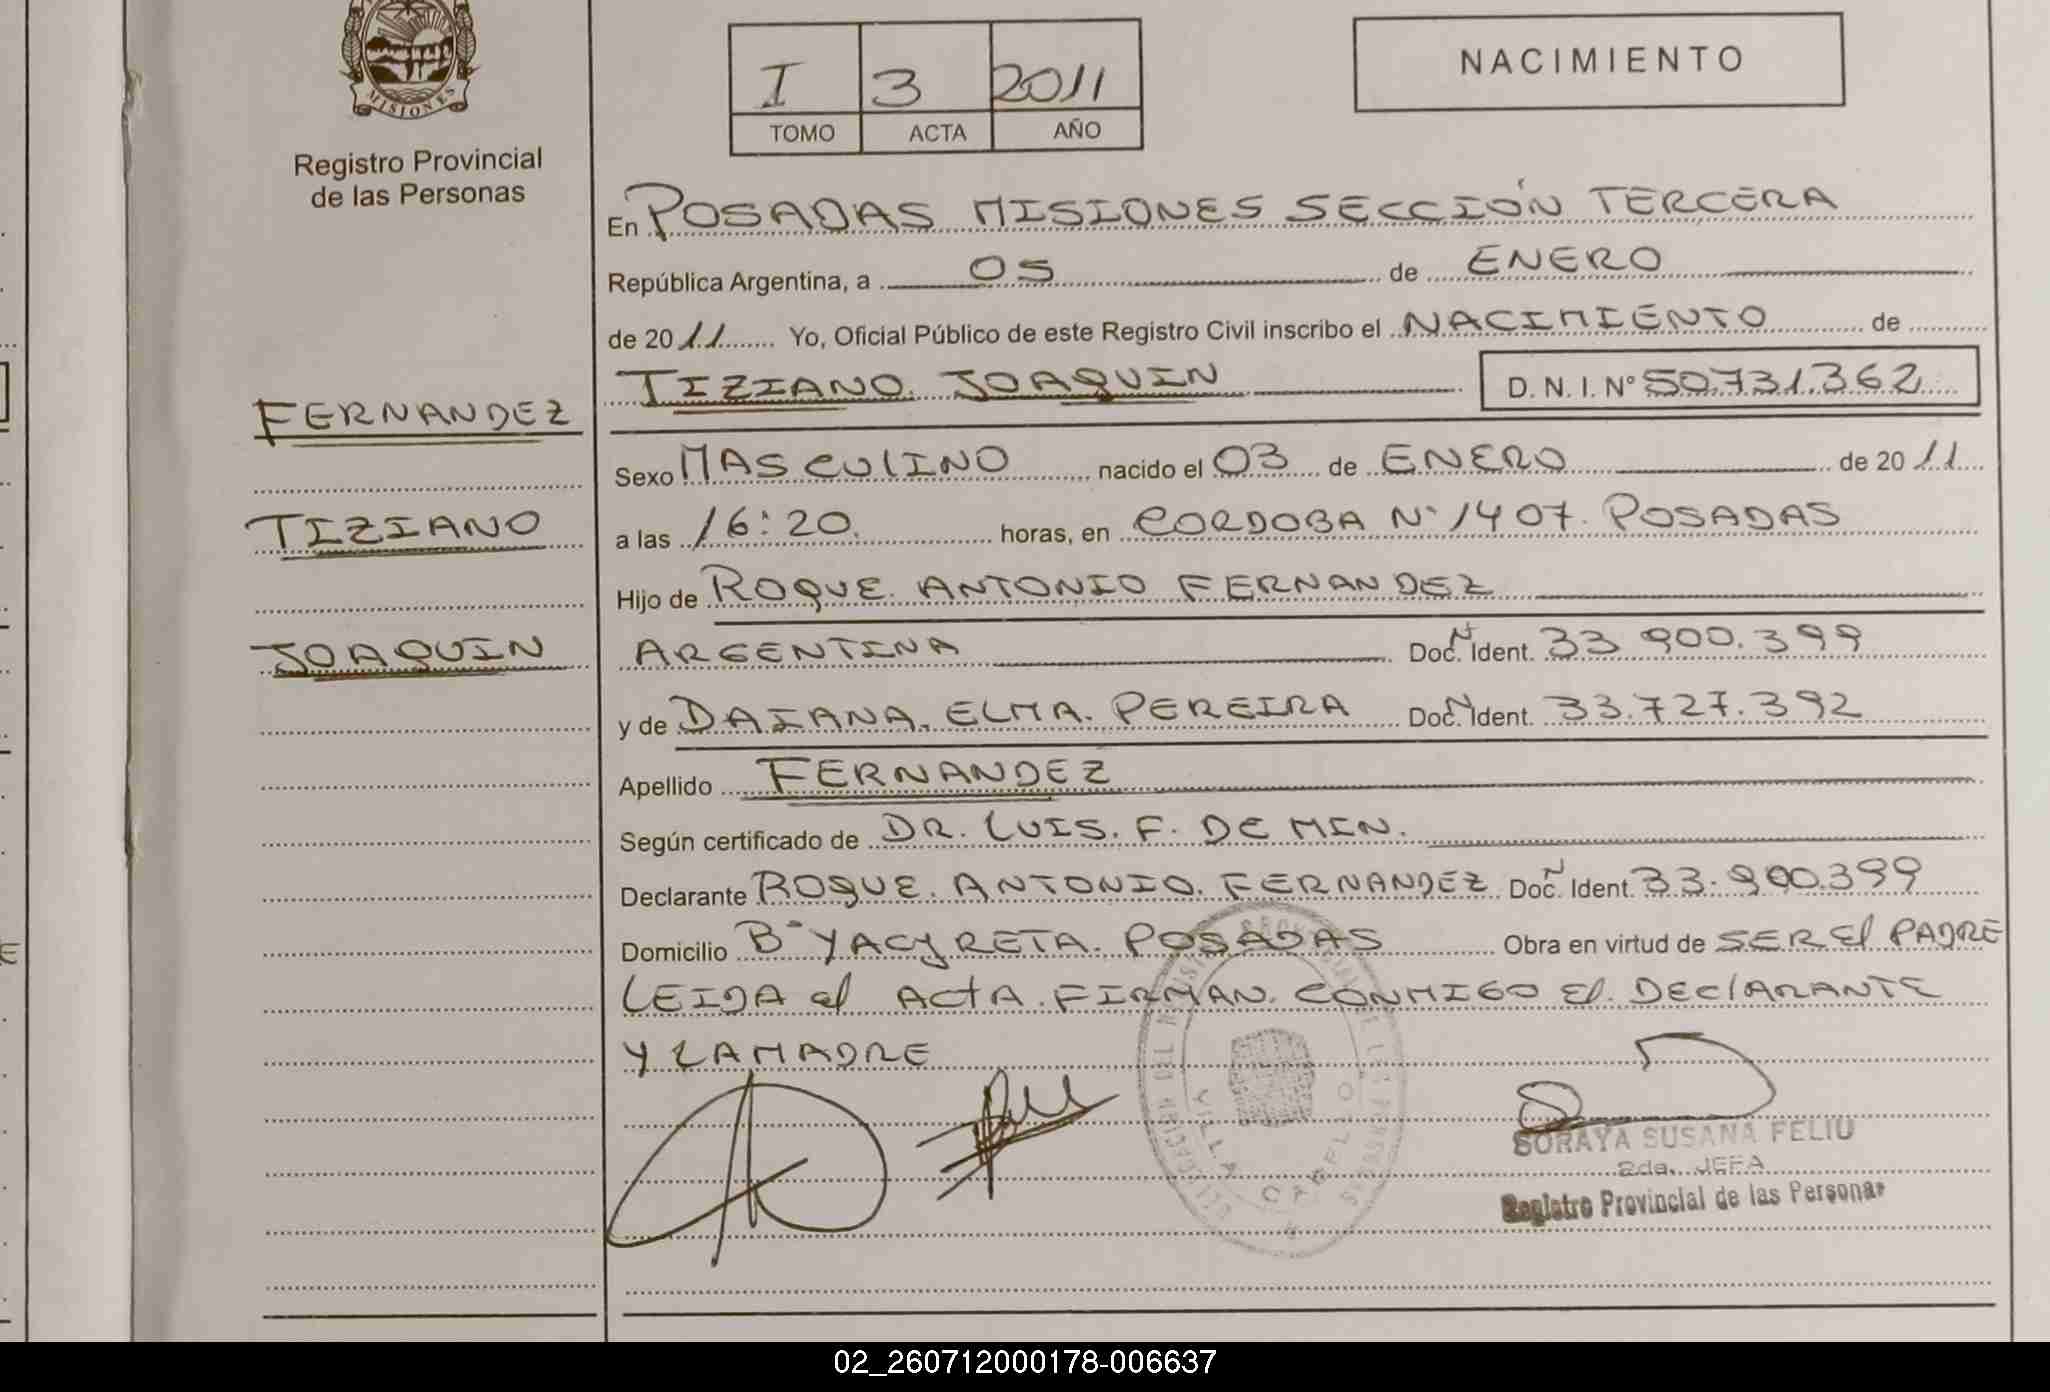 MISIONES
Registro Provincial
de las Personas
I 3 2011
TOMO ACTA AÑO
NACIMIENTO
En POSADAS MISIONES SECCIÓN TERCERA
República Argentina, a 05 de ENERO
de 2011 Yo, Oficial Público de este Registro Civil inscribo el NACIMIENTO de
TIZIANO JOAQUIN D.N.I. Nº 50.731.362
FERNANDEZ
TIZIANO
JOAQUIN
Sexo MASCULINO nacido el 03 de ENERO de 2011
a las 16:20. horas, en CORDOBA Nº 1407. POSADAS
Hijo de ROQUE ANTONIO FERNANDEZ
ARGENTINA Doc. N Ident. 33 900.399
y de DAIANA. ELMA. PEREIRA Doc. N Ident. 33.727.392
Apellido FERNANDEZ
Según certificado de DR. LUIS. F. DE MIN.
Declarante ROQUE. ANTONIO. FERNANDEZ Doc. N Ident. 33.900.399
Domicilio Bº YACYRETA. POSADAS Obra en virtud de SER El PADRE
LEIDA el ACtA. FIRMAN. CONMIGO El. DEClARANTE
Y LA MADRE
VILLA CABELLO
SORAYA SUSANA FELIU
2da. JEFA
Registro Provincial de las Personas
02_260712000178-006637